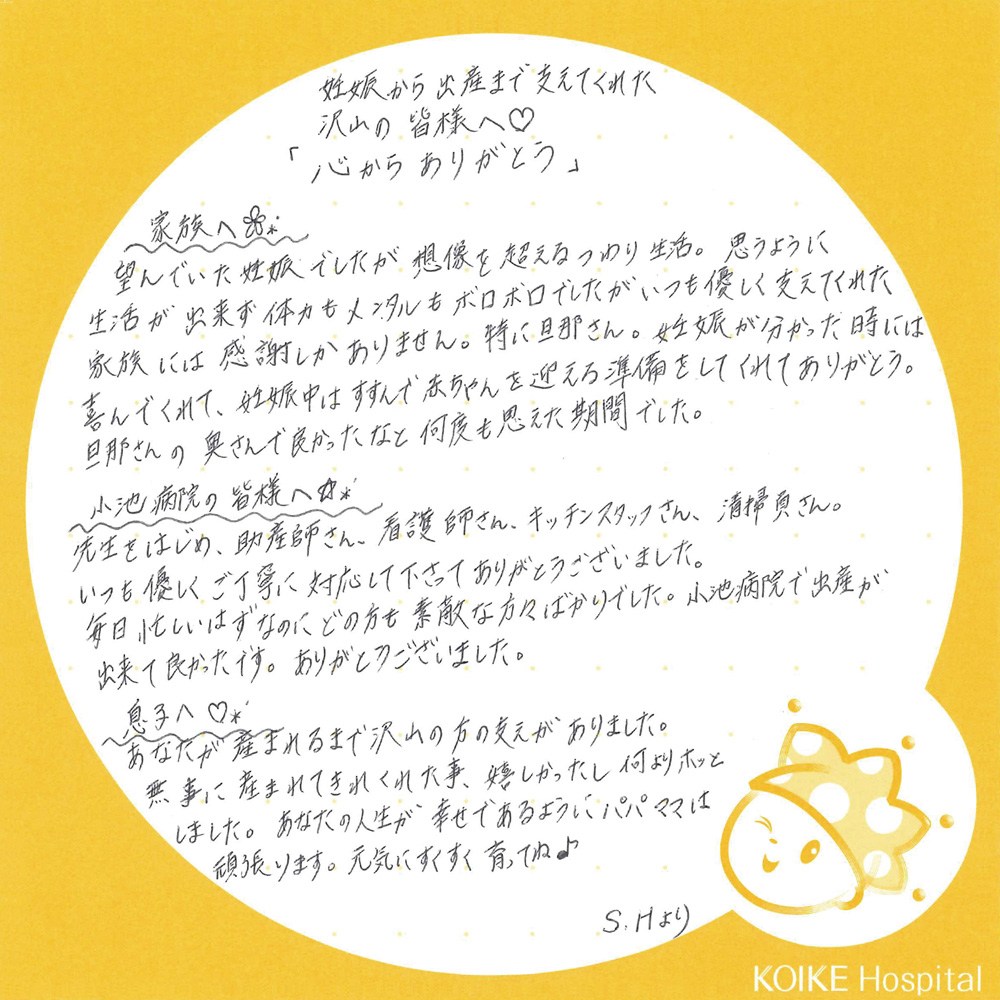 妊娠から出産まで支えてくれた
沢山の皆様へ♡
「心からありがとう」
家族へ
望んでいた妊娠でしたが想像を超えるつわり生活。思うように
生活が出来ず体力もメンタルもボロボロでしたがいつも優しく支えてくれた
家族には感謝しかありません。特に旦那さん。妊娠が分かった時には
喜んでくれて、妊娠中はすすんで赤ちゃんを迎える準備をしてくれてありがとう。
旦那さんの奥さんで良かったなと何度も思えた期間でした。
小池病院の皆様へ☆
先生をはじめ、助産師さん、看護師さん、キッチンスタッフさん、清掃員さん。
いつも優しくご丁寧に対応して下さってありがとうございました。
毎日忙しいはずなのにどの方も素敵な方々ばかりでした。小池病院で出産が
出来て良かったです。ありがとうございました。
息子へ♡
あなたが産まれるまで沢山の方の支えがありました。
無事に産まれてきれくれた事、嬉しかったし何よりホッと
しました。あなたの人生が幸せであるようにパパママは
頑張ります。元気にすくすく育ってね♪
S.Hより
KOIKE Hospital